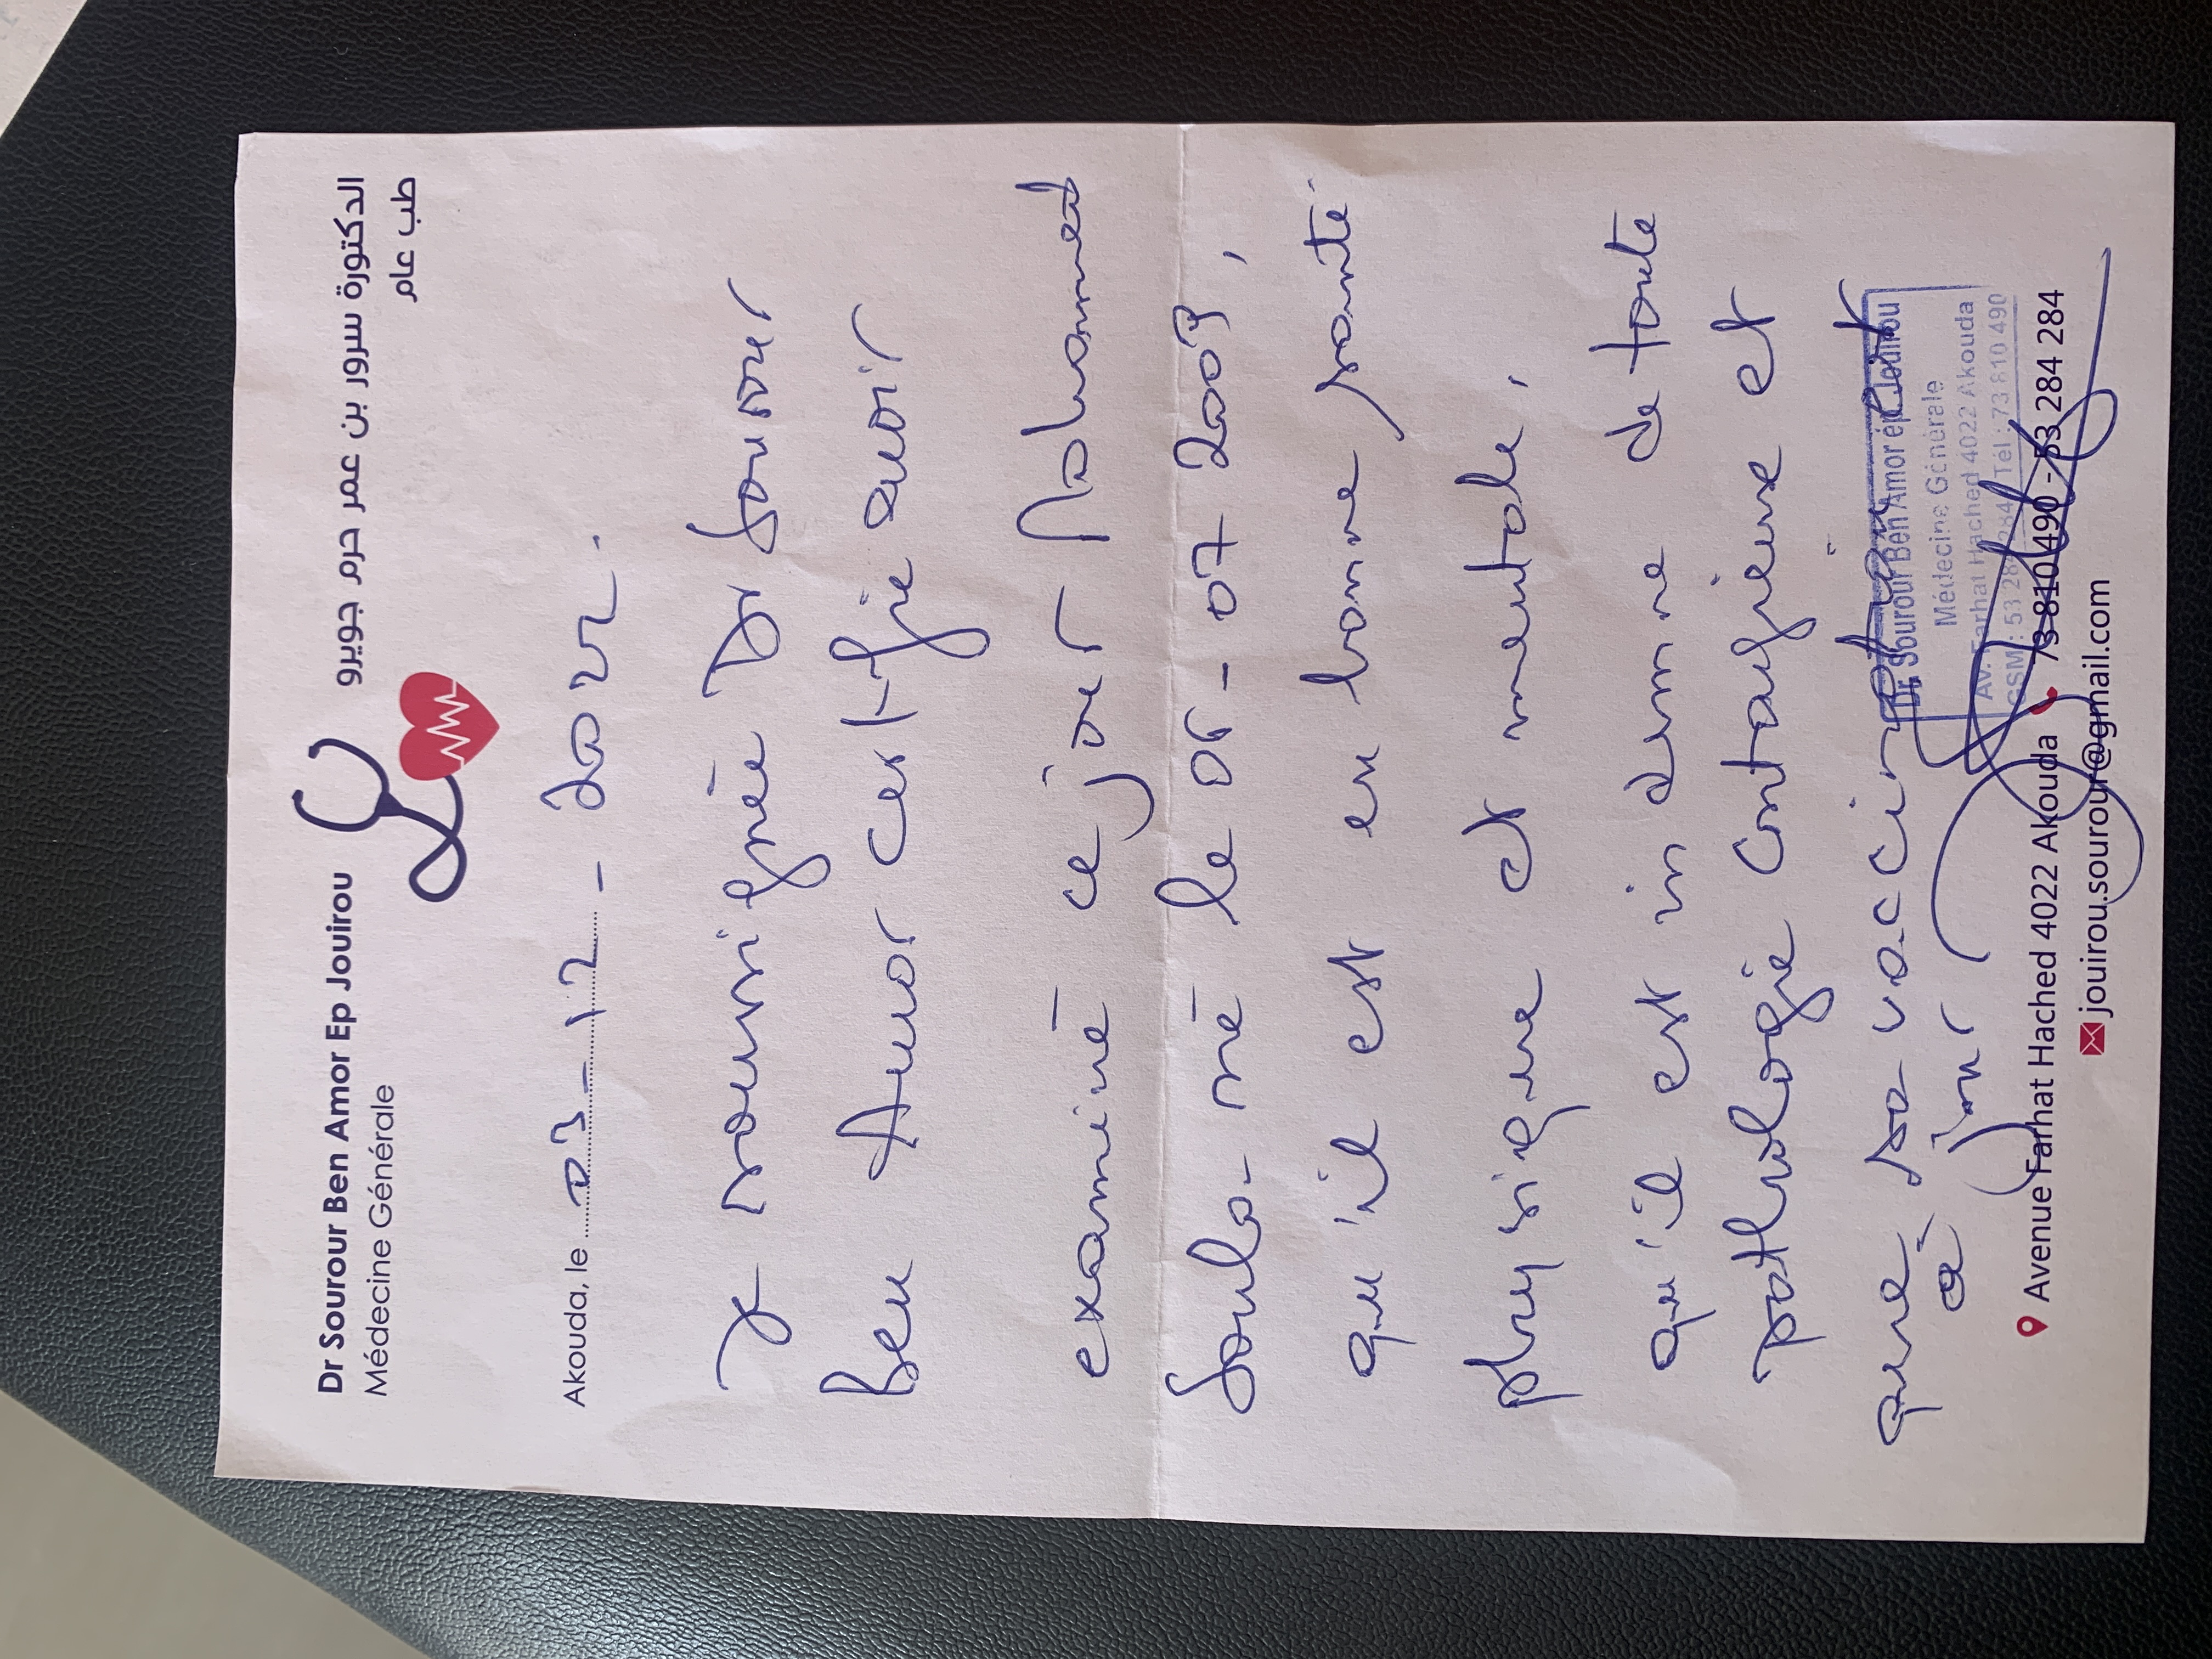 Dr Sourour Ben Amor Ep Jouirou
Médecine Générale
الدكتورة سرور بن عمر حرم جويرو
طب عام
Akouda, le 03-12-2021.
Je soussignée Dr Sourour
Ben Amor certifie avoir
examiné ce jour Mohamed
né le 01-07-2009,
qu'il est en bonne santé
physique et mentale,
qu'il est indemne de toute
pathologie contagieuse et
que sa vaccination est
à jour
Dr. Sourour Ben Amor ép Jouirou
Médecine Générale
Av. Farhat Hached 4022 Akouda
GSM: 53 284 284 Tél: 73 810 490
Avenue Farhat Hached 4022 Akouda 73 810 490 - 53 284 284
jouirou.sourour@gmail.com